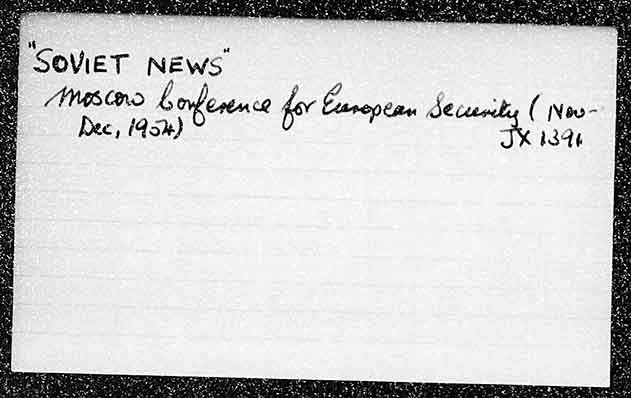 "SOVIET NEWS"
Moscow Conference for European Security (Nov-
Dec, 1954)
JX 1391